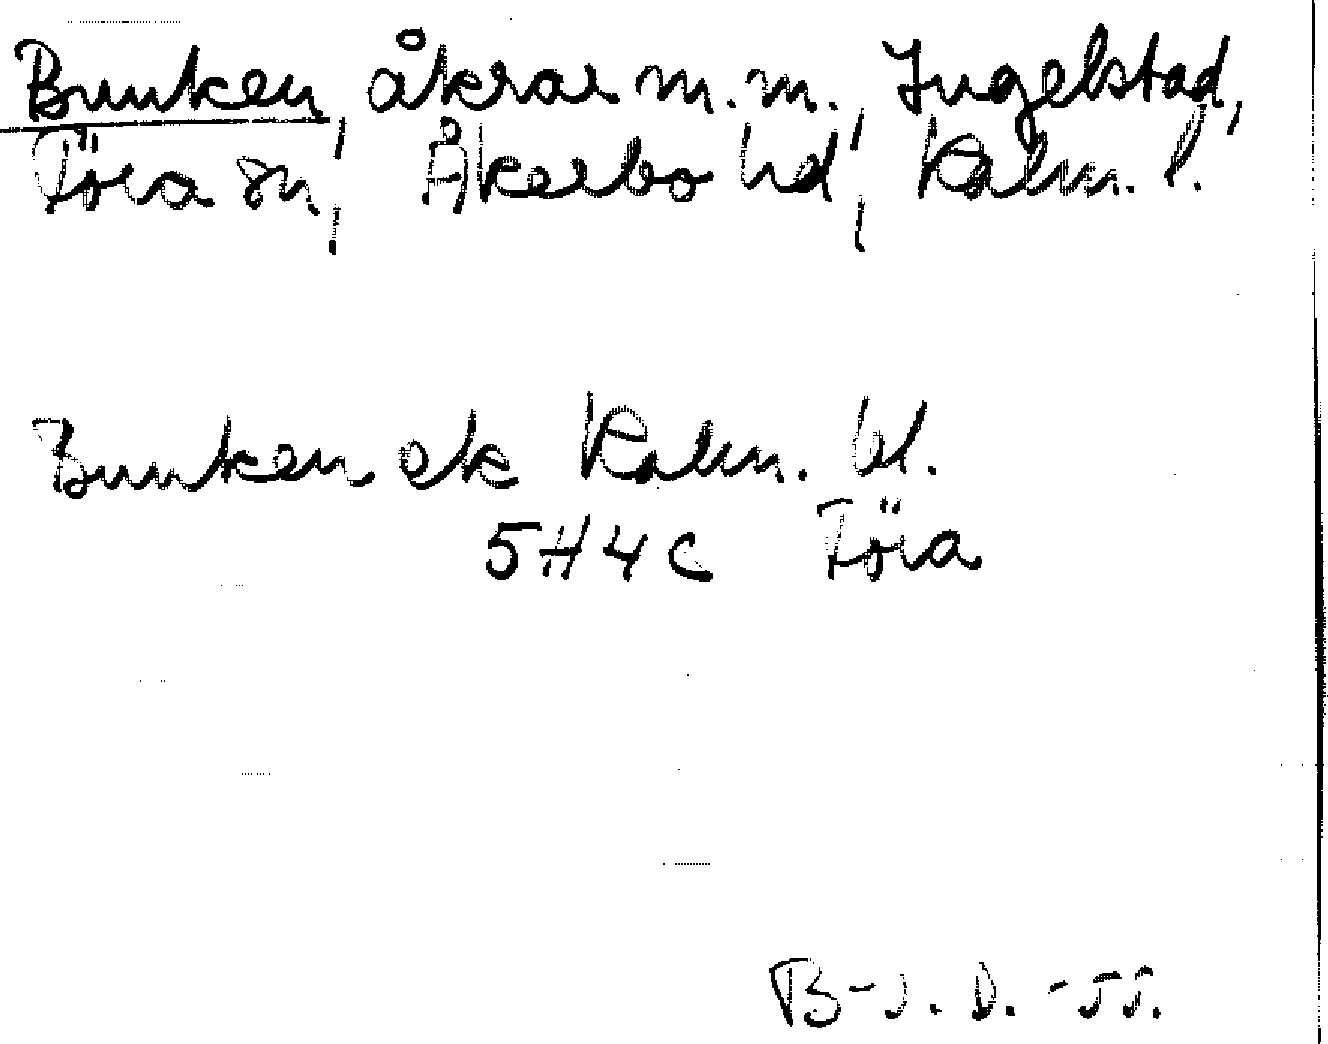 Bunken, åkrar m.m., Ingelstad,
Föra sn, Åkerbo hd, Kalm. l.
Bunken ek Kalm. bl.
5H4c Föra
B-J. D. -55.